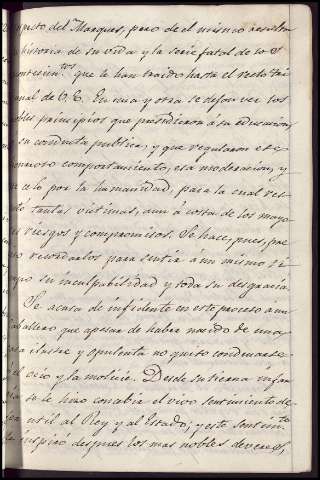 del Marques, pero de el mismo resulta
historia de su vida y la serie fatal de
que le han traido hasta el recto tri
nal de V. E. En una y otra se descu
principios que presidieron á su educacion,
su conducta publica, y que regularon ese
comportamiento, esa moderacion, y
celo por la humanidad, para la cual res
tantas victimas, aun á costa de los mayo
riesgos y compromisos. Se hace, pues, pre
recordarlos para sentir á un mismo ti
su inculpabilidad y toda su desgracia.
Se acusa de infidente en este proceso á un
aballero que apesar de haber nacido de una
ilustre y opulenta no quiso condenarse
el ocio y la molicie. Desde su tierna infan
se le hizo concebir el vivo sentimiento de
util al Rey y al Estado; y este sentim.to
inspiró despues los mas nobles deveres,